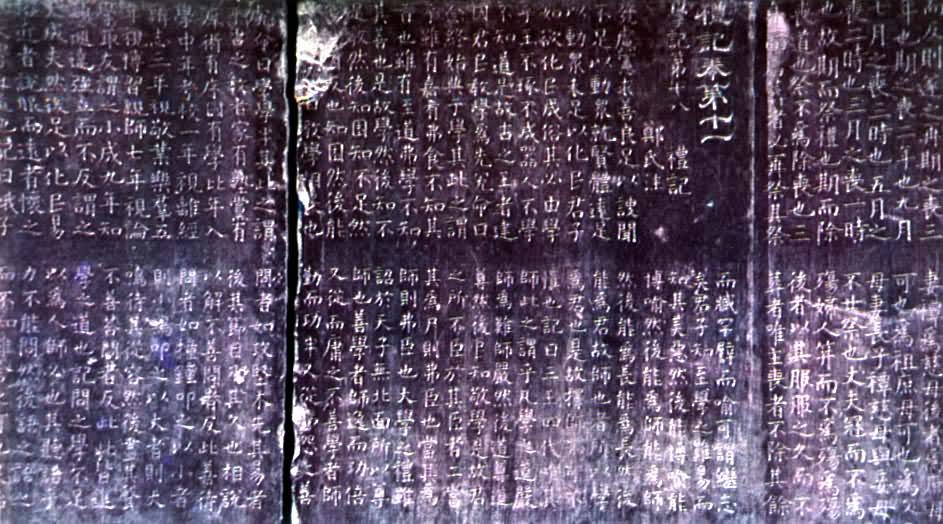 年也期之喪二年也九月
七月之喪三時也五月之
喪二時也三月之喪一時
也故期而祭禮也期而除
喪道也祭不為除喪也三
再祭其祭
禮記卷第十一
學記第十八 禮記 鄭氏注
發慮憲求善良足以謏聞
不足以動衆就賢體遠足
以動衆未足以化民君子
如欲化民成俗其必由學
乎玉不琢不成器人不學
不知道是故古之王者建
國君民教學為先兊命曰
念終始典于學其此之謂
乎雖有嘉肴弗食不知其
旨也雖有至道弗學不知
其善也是故學然後知不
足教然後知困知不足然
也知困然後能
故曰教學相長也
兊命曰學學半其此之謂
乎古之教者家有塾黨有
庠術有序國有學比年入
學中年考校一年視離經
辨志三年視敬業樂羣五
年視博習親師七年視論
學取友謂之小成九年知
類通達強立而不反謂之
大成夫然後足以化民易
俗近者說服而遠者懷之
記曰蛾子
可也為祖庶母可也為父
母妻長子禫慈母與妾母
不世祭也丈夫冠而不為
殤婦人笄而不為殤為殤
後者以其服服之久而不
葬者唯主喪者不除其餘
而臧罕譬而喻可謂繼志
矣君子知至學之難易而
知其美惡然後能博喻能
博喻然後能為師能為師
然後能為長能為長然後
能為君故師也者所以學
為君也是故擇師不可不
慎也記曰三王四代唯其
師此之謂乎凡學之道嚴
師為難師嚴然後道尊道
尊然後民知敬學是故君
之所不臣於其臣者二當
其為尸則弗臣也當其為
師則弗臣也大學之禮雖
詔於天子無北面所以尊
師也善學者師逸而功倍
又從而庸之不善學者師
勤而功半又從而怨之善
問者如攻堅木先其易者
後其節目及其久也相說
以解不善問者反此善待
問者如撞鐘叩之以小者
則小鳴叩之以大者則大
鳴待其從容然後盡其聲
不善荅問者反此此皆進
學之道也記問之學不足
以為人師必也其聽語乎
力不能問然後語之語之
而不知雖